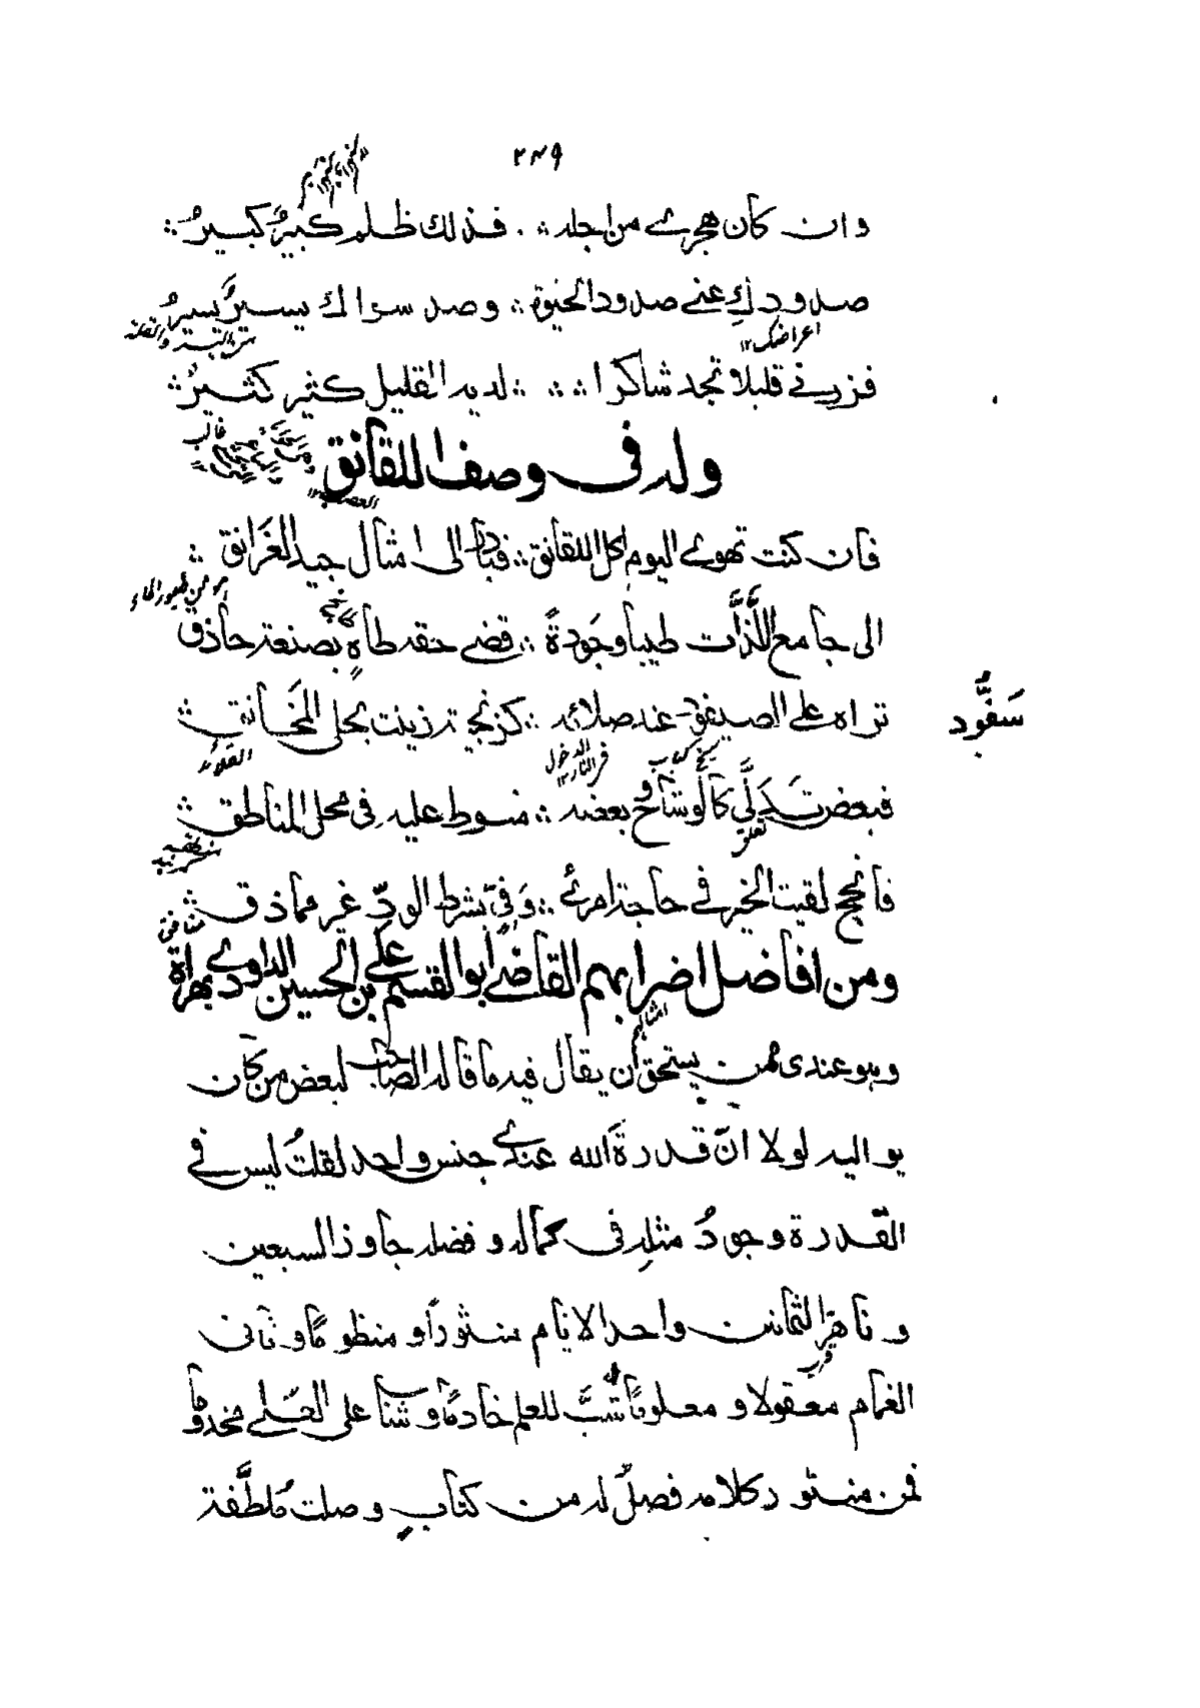 ٢٤٩
وان كان هجري من اجله ∴ فذلك ظلم كبيرٌ كبيرُ ∴
صدودكِ عني صدود الحيوة ∴ وصد سواك يسيرٌ يسيرُ
اعراضك ١٢
فزرني قليلا تجد شاكرا ∴ لديه القليل كثير كثيرُ ∴
وله فى وصف اللقانق
فان كنت تهوى اليوم اكل اللقانق ∴ فبادر الى امثال جيد الغَرانق ∴
هو من طيور الماء
الى جامع اللَّذَّات طيبا وجَودةً ∴ قضى حقه طاهٍ بصنعة حاذق
سَفُّود
تراه على الصيغون عند صلائه ∴ كزنجية زينت بحلى المَخانق ∴
القلائد
فبعض تَدَلَّي كالوشاح وبعضه ∴ منوط عليه فى محل المناطق ∴
فانجح لقيت الخير في حاجة امرئ ∴ وَفِيّ بشرط الودّ غير مماذق ∴
منافق
ومن افاضل اضرابهم القاضي ابو القسم علي بن الحسين الداودي بهراة
امثالهم
وهو عندى ممن يستحق ان يقال فيه ما قاله الصاحب لبعض من كان
يواليه لولا انّ قدرة الله عندي جنس واحد لقلتُ ليس في
القدرة وجودُ مثلهِ فى كماله وفضله جاوز السبعين
وناهز الثمانين واحد الانام منثوراً ومنظوما وثانى
قرب
الغمام معقولا ومعلوما شبَّ للعلم خادما وشاب على الحلم مخدوما
فمن منثور كلامه فصلٌ له من كتابٍ وصلت مُلطَّفة